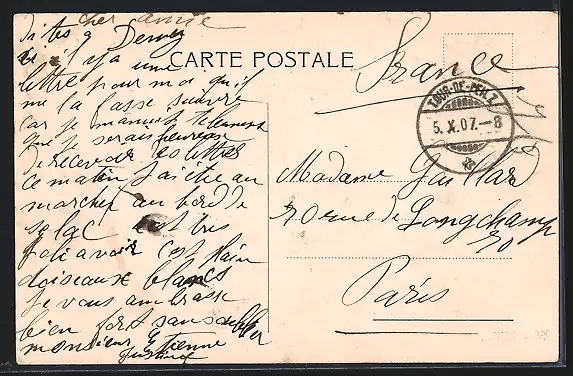 cher amie
Dites a Denny
si il y a une
lettre pour moi qu'il
me la fasse suivre
car je
que je serais heureuse
De recevoir vos lettres
ce matin j'ai ete au
marcher au bord de
se lac c'est tres
joli a voir c'est plain
doiseaux blancs
Je vous ambrasse
bien fort sans oublier
monsieur Etienne
CARTE POSTALE
France
TOUR-DE-PEILZ
5.X.07.-8
Madame Gaillard
70 rue de Longchamp
70
Paris